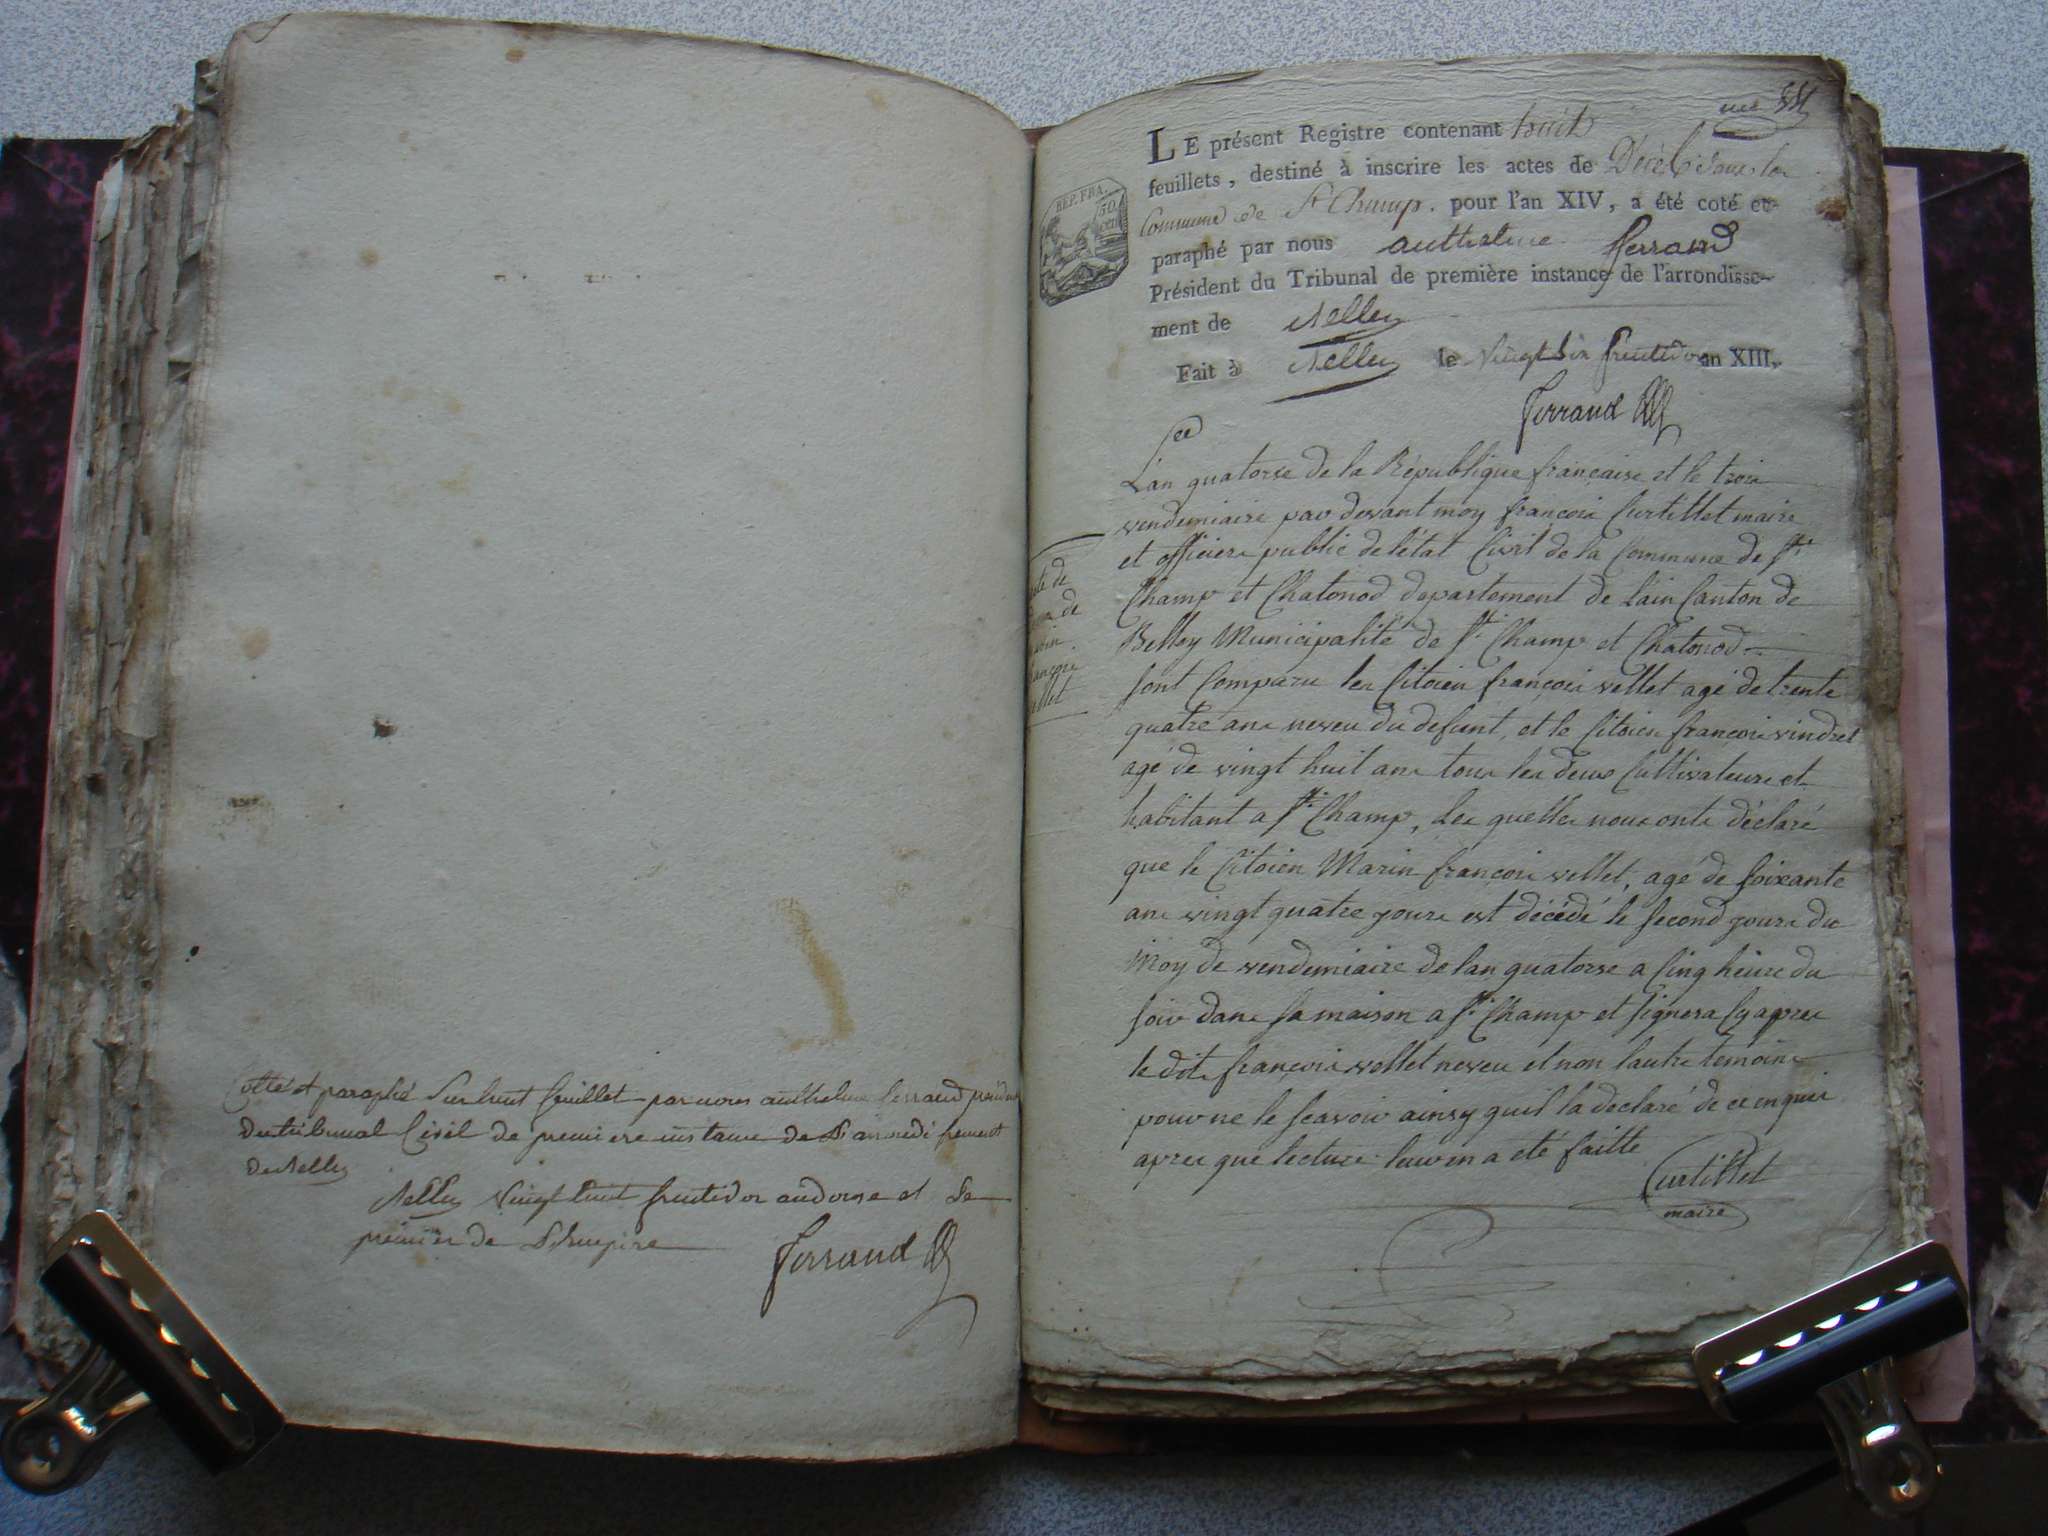 Cotté et paraphé sur huit feuillet par nous anthelme ferrand présidt
du tribunal Civil de premiere instance de L'arrondissement
de Belley
Belley vingt huit fructidor an treize et Le
premier de L'Empire
ferrand
une
REP. FRA.
50
LE présent Registre contenant huit
feuillets, destiné à inscrire les actes de Décès dans la
Commune de St Champ. pour l'an XIV, a été coté et
paraphé par nous anthelme ferrand
Président du Tribunal de première instance de l'arrondisse-
ment de Belley
Fait à Belley le vingt six fructidor an XIII.
ferrand
L'an quatorse de la République française et le trois
vendemiaire par devant moy françois Curtillet maire
et officiere public de létat Civil de la Commune de St
Champ et Chatonod departement de Lain Canton de
Belley Municipalité de St Champ et Chatonod
sont Comparu les Citoien françois vellet agé de trente
quatre ans neveu du defunt, et le Citoien françois vindret
agé de vingt huit ans tous les deux Cultivateurs et
habitant a St Champ, Les quelles nous onts déclaré
que le Citoien Marin françois vellet, agé de soixante
ans vingt quatre jours est décédé le second jours du
Moy de vendemiaire de lan quatorse a Cinq heure du
soir dans sa maison a St Champ et signera Cy apres
le dit françois vellet neveu et non lautre temoins
pour ne le scavoir ainsy quil la declaré de ce enquis
apres que lecture leur en a été faitte
Curtillet
maire
de
de
françois
vellet